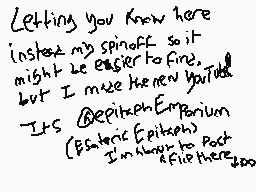 Letting you know here
instead my spinoff so it
might be easier to find,
but I made the new YouTube!
Its @epitaphEmporium
(Esoteric Epitaph)
I'm about to Post
a flip there too